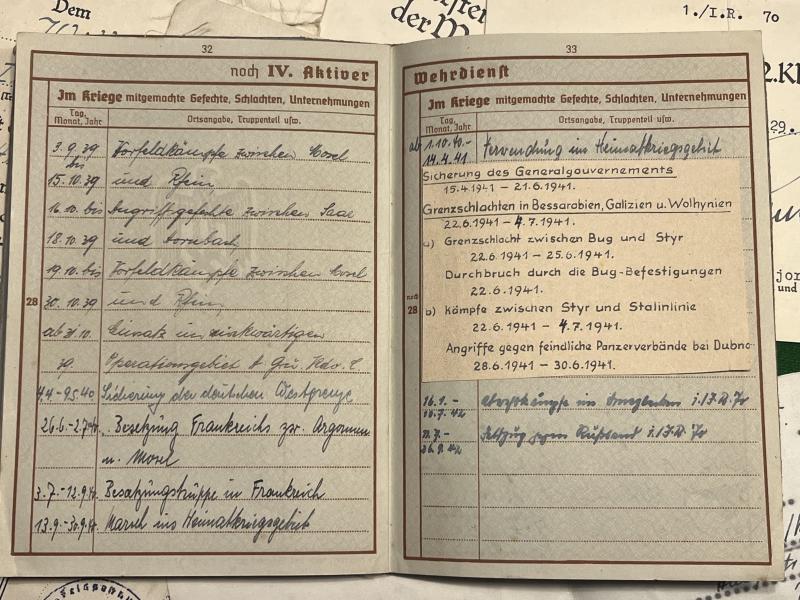 Dem
der M
1./I.R. 70
2.K
29.
jor
und
32
noch IV. Aktiver
Im Kriege mitgemachte Gefechte, Schlachten, Unternehmungen
Tag, Monat, Jahr
Ortsangabe, Truppenteil usw.
3.9.39 Vorfeldkämpfe zwischen Mosel
bis
15.10.39 und Rhein
16.10. bis Angriffsgefechte zwischen Saar
18.10.39 und Hornbach
19.10. bis Vorfeldkämpfe zwischen Mosel
28
30.10.39 und Rhein
ab 31.10. Einsatz im rückwärtigen
39. Operationsgebiet d.
4.4.-9.5.40 Sicherung der deutschen Westgrenze
26.6.-2.7.40. Besetzung Frankreichs zw. Argonnen
u. Mosel
3.7.-12.9.40 Besatzungstruppe in Frankreich
13.9.-30.9.40 Marsch ins Heimatkriegsgebiet
33
Wehrdienst
Im Kriege mitgemachte Gefechte, Schlachten, Unternehmungen
Tag, Monat, Jahr
Ortsangabe, Truppenteil usw.
ab 1.10.40.-
14.4.41 Verwendung im Heimatkriegsgebiet
Sicherung des Generalgouvernements
15.4.1941 – 21.6.1941.
Grenzschlachten in Bessarabien, Galizien u. Wolhynien
22.6.1941 – 4.7.1941.
a) Grenzschlacht zwischen Bug und Styr
22.6.1941 – 25.6.1941.
Durchbruch durch die Bug-Befestigungen
22.6.1941.
noch
28
b) Kämpfe zwischen Styr und Stalinlinie
22.6.1941 – 4.7.1941.
Angriffe gegen feindliche Panzerverbände bei Dubno
28.6.1941 – 30.6.1941.
16.1.-
.7.42 Abwehrkämpfe im
.7.- Feldzug gegen Rußland
.42